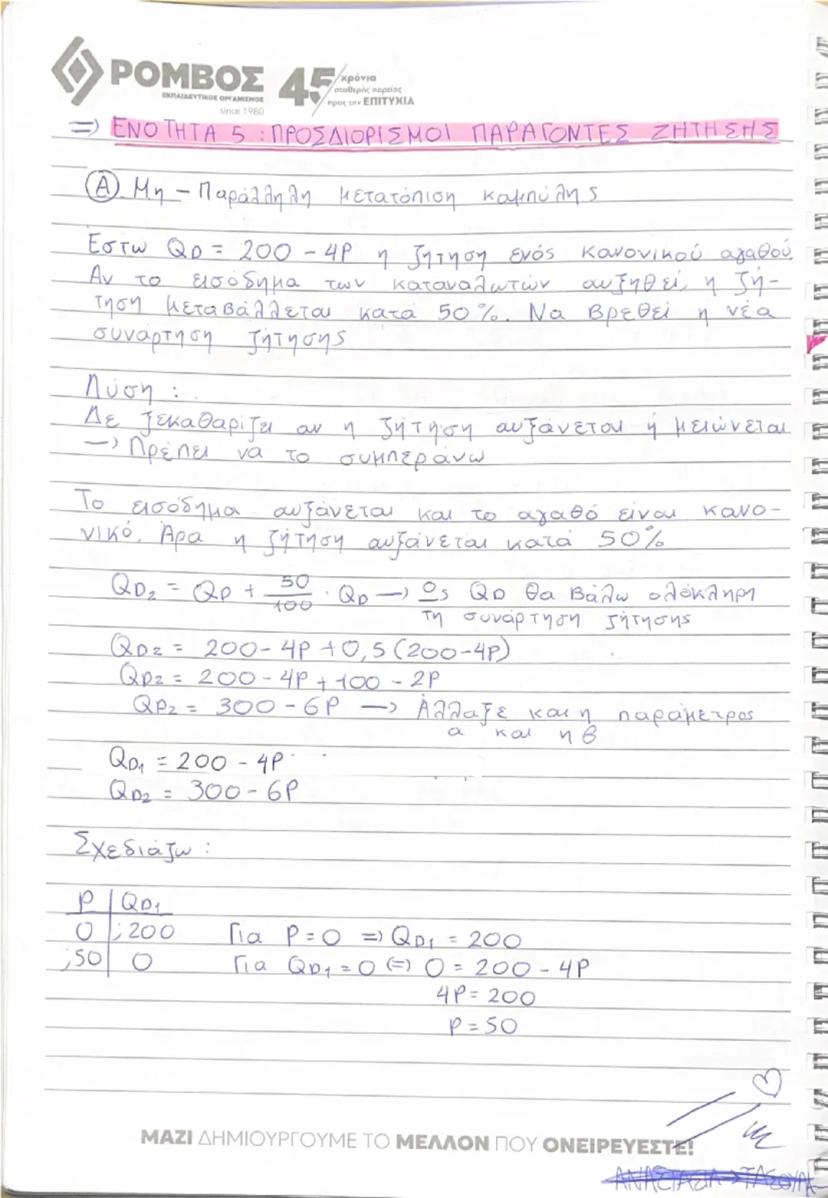 ΡΟΜΒΟΣ
ΕΚΠΑΙΔΕΥΤΙΚΟΣ ΟΡΓΑΝΙΣΜΟΣ
since 1980
45 χρόνια
σταθερής πορείας
προς την ΕΠΙΤΥΧΙΑ
=) ΕΝΟΤΗΤΑ 5 : ΠΡΟΣΔΙΟΡΙΣΜΟΙ ΠΑΡΑΓΟΝΤΕΣ ΖΗΤΗΣΗΣ
Α Μη - Παράλληλη μετατόπιση καμπύλης
Εστω QD = 200 - 4P η ζήτηση ενός κανονικού αγαθού
Αν το εισόδημα των καταναλωτών αυξηθεί, η ζή-
τηση μεταβάλλεται κατά 50%. Να βρεθεί η νέα
συνάρτηση ζήτησης
Λύση :
Δε ξεκαθαρίζει αν η ζήτηση αυξάνεται ή μειώνεται
―) Πρέπει να το συμπεράνω
Το εισόδημα αυξάνεται και το αγαθό είναι κανο-
νικό. Άρα η ζήτηση αυξάνεται κατά 50%
QD2 = QD + 50/100 · QD ―) Ως QD θα βάλω ολόκληρη
τη συνάρτηση ζήτησης
QD2 = 200 - 4P + 0,5 (200-4P)
QD2 = 200 - 4P + 100 - 2P
QD2 = 300 - 6P ―) Άλλαξε και η παράμετρος
α και η β
QD1 = 200 - 4P
QD2 = 300 - 6P
Σχεδιάζω :
P QD1
0 ;200 Για P=0 =) QD1 = 200
;50 0 Για QD1=0 (=) 0 = 200 - 4P
4P = 200
P = 50
ΜΑΖΙ ΔΗΜΙΟΥΡΓΟΥΜΕ ΤΟ ΜΕΛΛΟΝ ΠΟΥ ΟΝΕΙΡΕΥΕΣΤΕ!